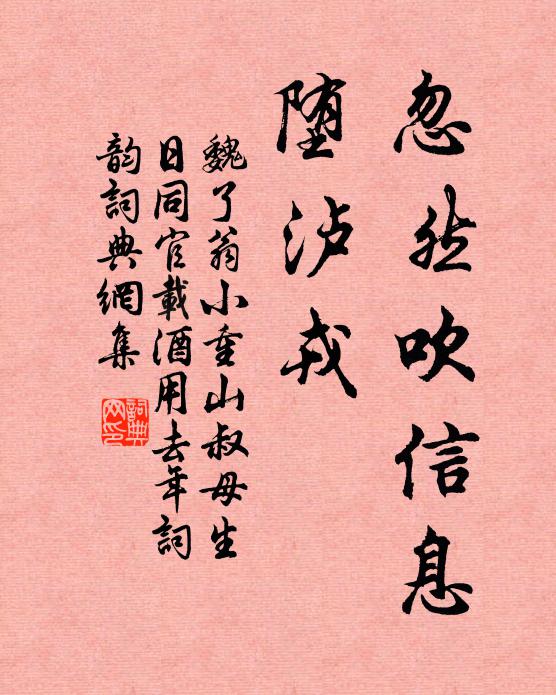 忽然吹信息
堕泸戎
魏了翁小重山叔母生
日同官載酒用去年詞
韵詞典網集
詞典
网印